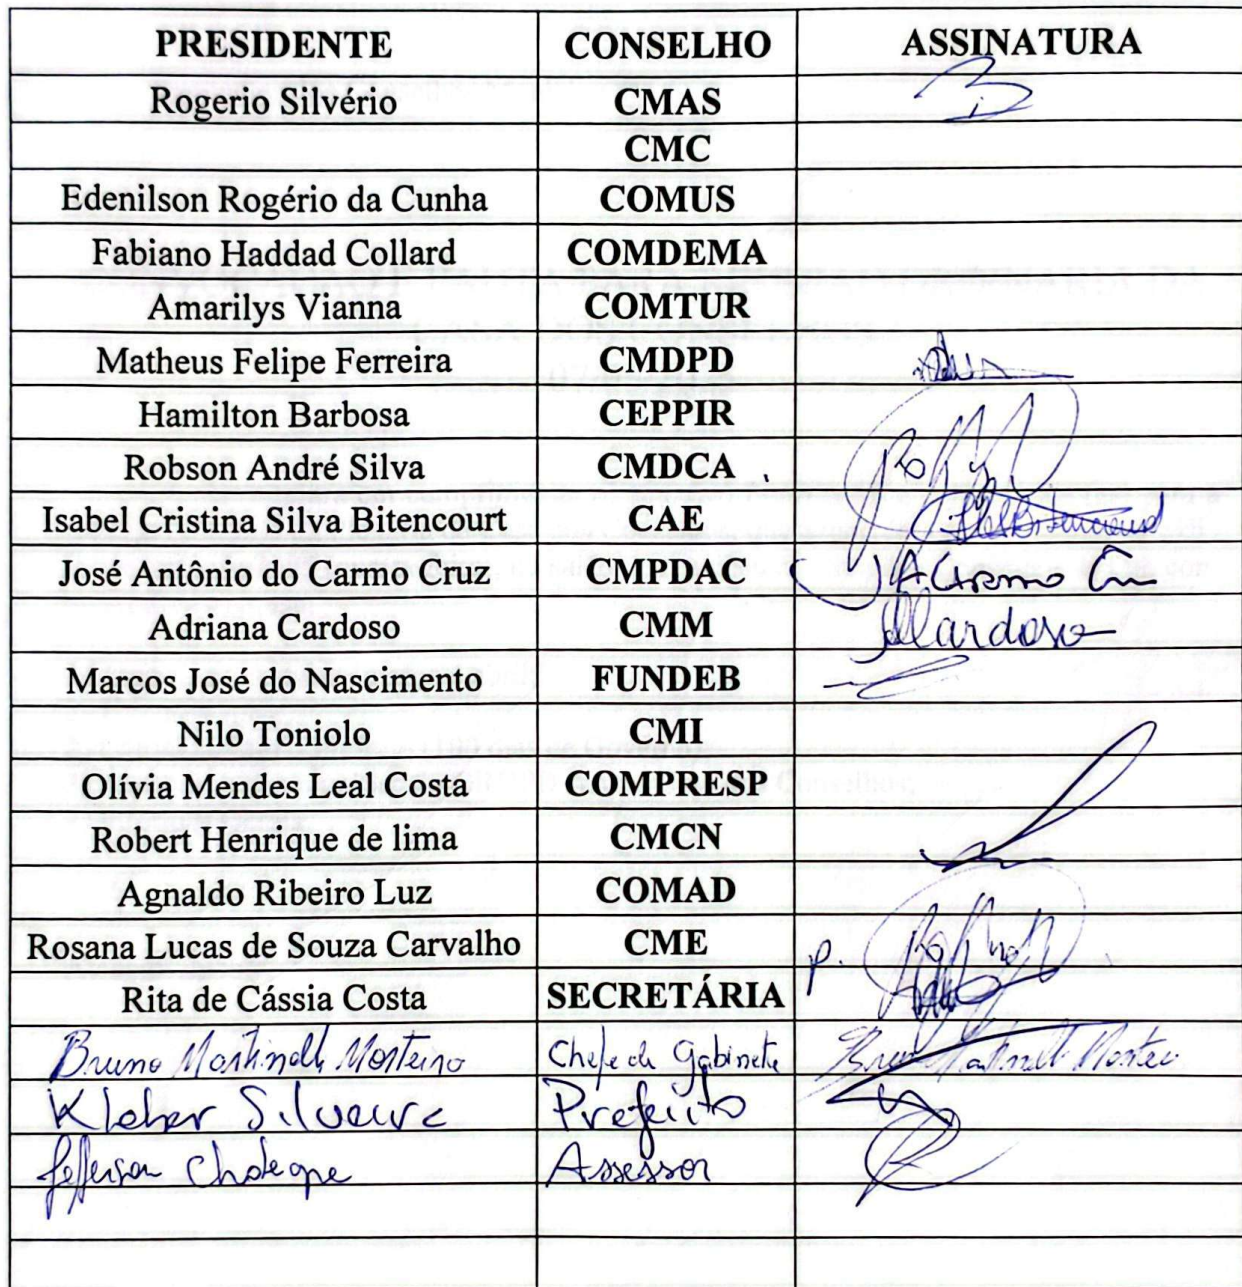 PRESIDENTE CONSELHO ASSINATURA
Rogerio Silvério CMAS
CMC
Edenilson Rogério da Cunha COMUS
Fabiano Haddad Collard COMDEMA
Amarilys Vianna COMTUR
Matheus Felipe Ferreira CMDPD
Hamilton Barbosa CEPPIR
Robson André Silva CMDCA
Isabel Cristina Silva Bitencourt CAE
José Antônio do Carmo Cruz CMPDAC
Adriana Cardoso CMM
Marcos José do Nascimento FUNDEB
Nilo Toniolo CMI
Olívia Mendes Leal Costa COMPRESP
Robert Henrique de lima CMCN
Agnaldo Ribeiro Luz COMAD
Rosana Lucas de Souza Carvalho CME p.
Rita de Cássia Costa SECRETÁRIA
Bruno Chefe de Gabinete
Kleber Silveira Prefeito
Jefferson Assessor